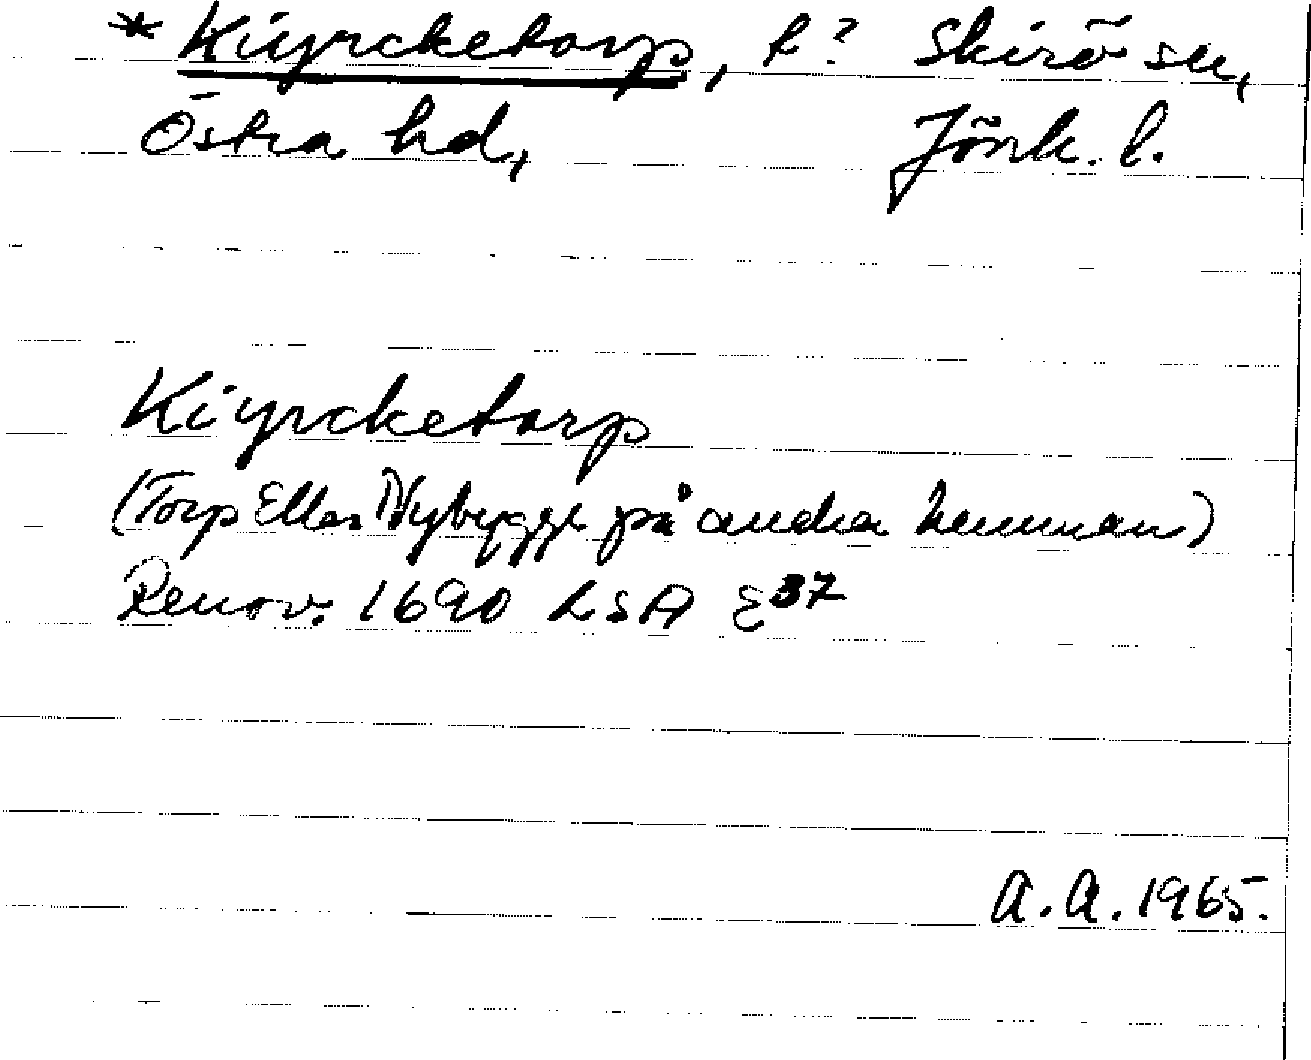 * Kiyrcketorp, t? Skirö sn,
Östra hd, Jönk. l.
Kiyrcketorp
(Torp Eller Nybygge på andra hemman)
Renov. 1690 LSA E 37
A.A. 1965.